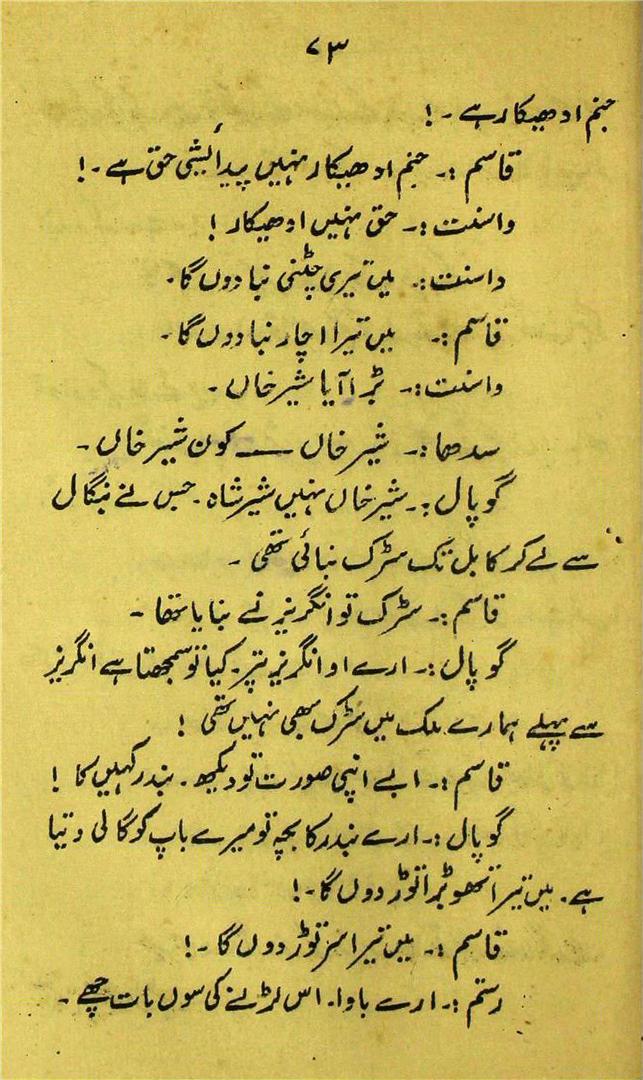 ۷۳
جنم ادھیکار ہے۔!
قاسم :۔ جنم ادھیکار نہیں پیدائشی حق ہے۔!
واسنت :۔ حق نہیں ادھیکار !
واسنت :۔ میں تیری چٹنی بنا دوں گا۔
قاسم :۔ میں تیرا اچار بنا دوں گا۔
واسنت :۔ بڑا آیا شیر خاں ۔
سدھا :۔ شیر خاں —— کون شیر خاں ۔
گوپال :۔ شیر خاں نہیں شیر شاہ ۔ جس نے بنگال
سے لے کر کابل تک سڑک بنائی تھی ۔
قاسم :۔ سڑک تو انگریز نے بنایا تھا ۔
گوپال :۔ ارے او انگریز پتر۔ کیا تو سمجھتا ہے انگریز
سے پہلے ہمارے ملک میں سڑک بھی نہیں تھی !
قاسم :۔ ابے اپنی صورت تو دیکھ ۔ بندر کہیں کا !
گوپال :۔ ارے بندر کا بچہ تو میرے باپ کو گالی دیتا
ہے ۔ میں تیرا تھوبڑا توڑ دوں گا۔!
قاسم :۔ میں تیرا سر توڑ دوں گا ۔!
رستم :۔ ارے باوا ۔ اس لڑنے کی سوں بات چھے ۔